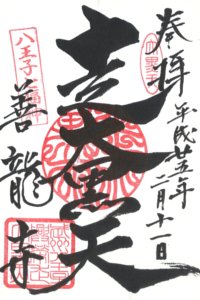 奉拝
平成廿五年
二月十一日
走大黒天
八王子
善龍寺